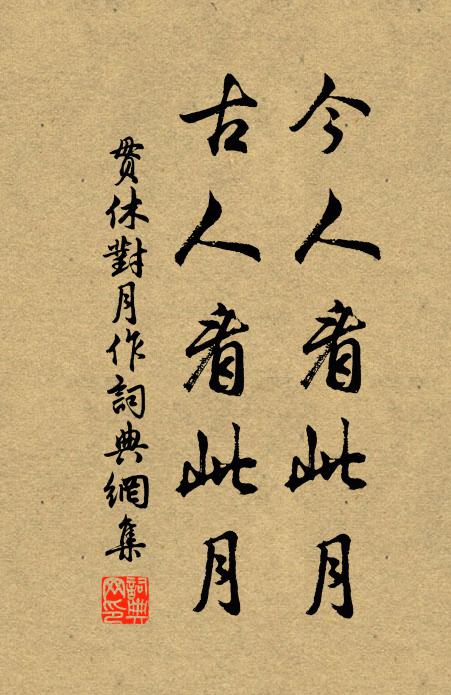 今人看此月
古人看此月
貫休對月作詞典網集
詞典网印